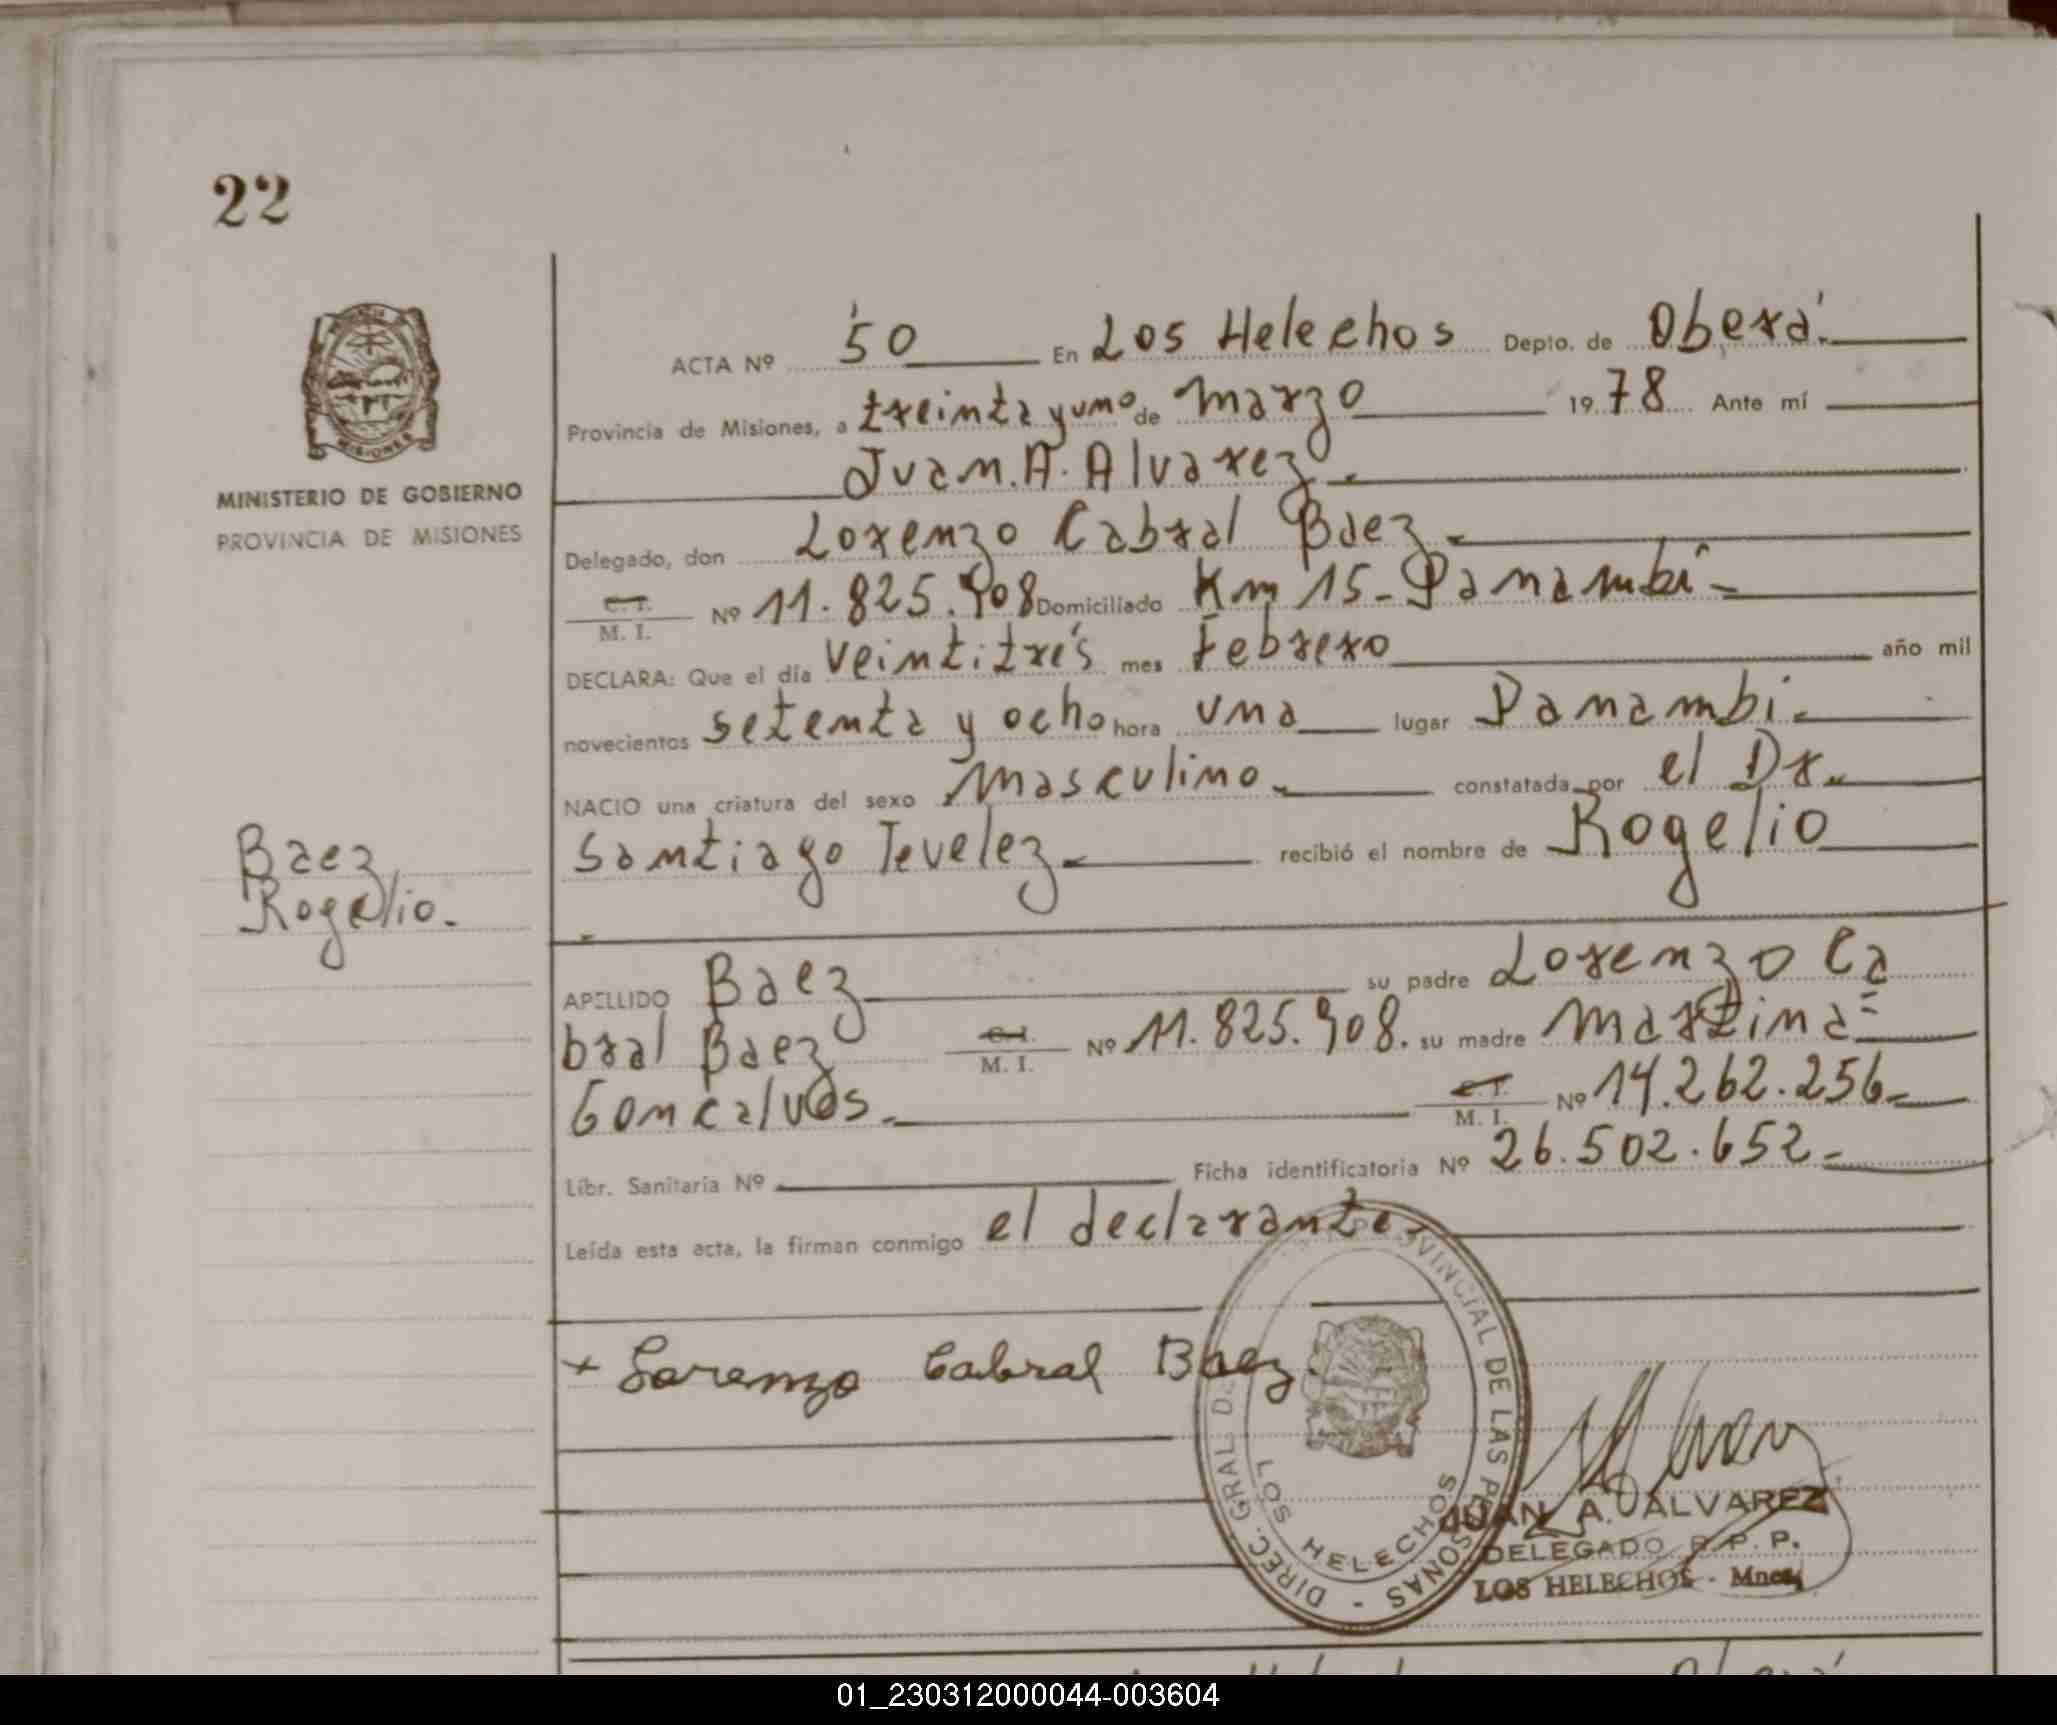 22
ACTA Nº 50 En Los Helechos Depto. de Oberá.
Provincia de Misiones, a treinta y uno de Marzo 1978 Ante mí
Juan. A. Alvarez.
MINISTERIO DE GOBIERNO
PROVINCIA DE MISIONES
Delegado, don Lorenzo Cabral Baez.
C. I.
M. I. Nº 11.825.908 Domiciliado Km 15 - Panambí -
DECLARA: Que el día veintitrés mes Febrero año mil
novecientos setenta y ocho hora una lugar Panambi.
NACIO una criatura del sexo Masculino. constatada por el Dr.
Santiago Tevelez. recibió el nombre de Rogelio
Baez
Rogelio.
APELLIDO Baez su padre Lorenzo Ca
bral Baez C. I. M. I. Nº 11.825.908. su madre Martina =
Goncalves. C. I. M. I. Nº 14.262.256 -
Libr. Sanitaria Nº Ficha identificatoria Nº 26.502.652 -
Leída esta acta, la firman conmigo el declarante.
+ Lorenzo Cabral Baez.
DIREC. GRAL PROVINCIAL DE LAS PERSONAS -
LOS HELECHOS
JUAN A. ALVAREZ
DELEGADO R. P. P.
LOS HELECHOS - Mnes.
01_230312000044-003604